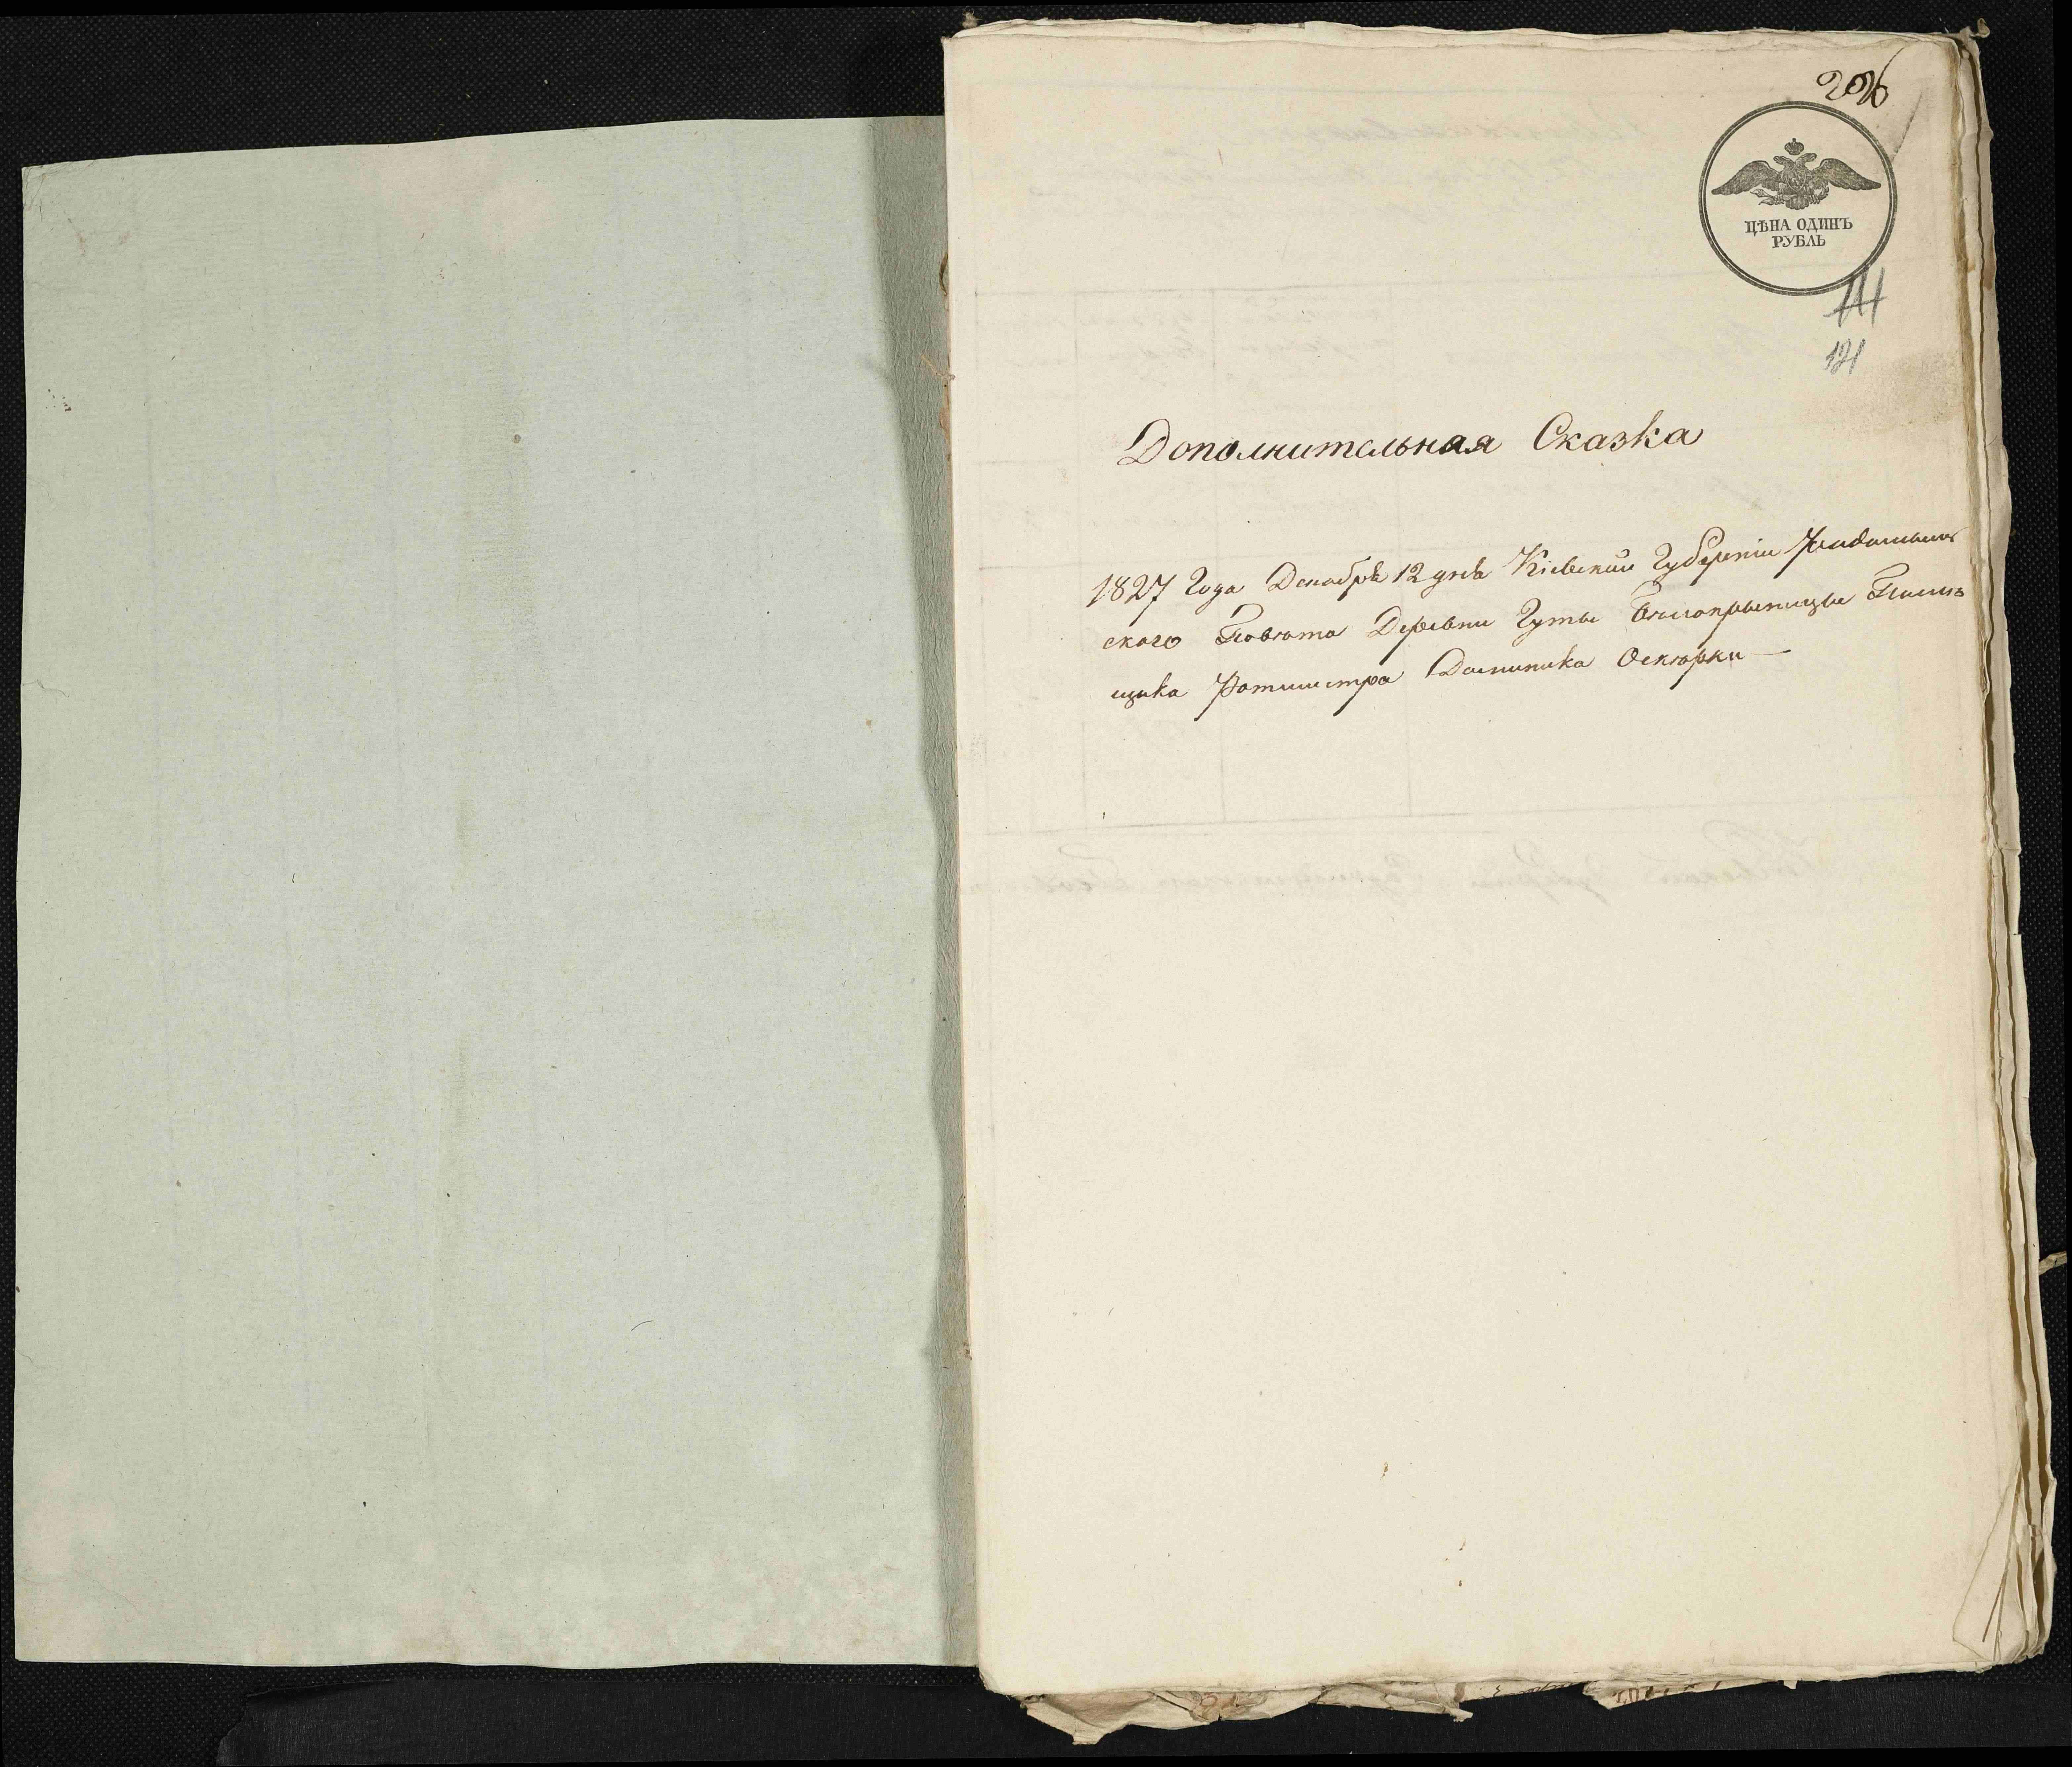 206
ЦѢНА ОДИНЪ
РУБЛЬ
121
Дополнительная Сказка
1827 года Декабря 12 дня Кіевской Губерніи Радомысль
ского Повѣта Деревни Гуты Помѣ
щика Ротмистра Доминика Оскюрки